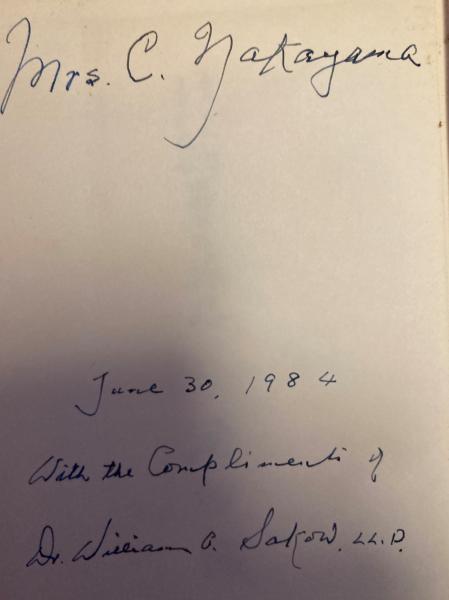 Mrs. C. Nakayama
June 30, 1984
With the Compliments of
Dr. William O. Sakow, LL.D.